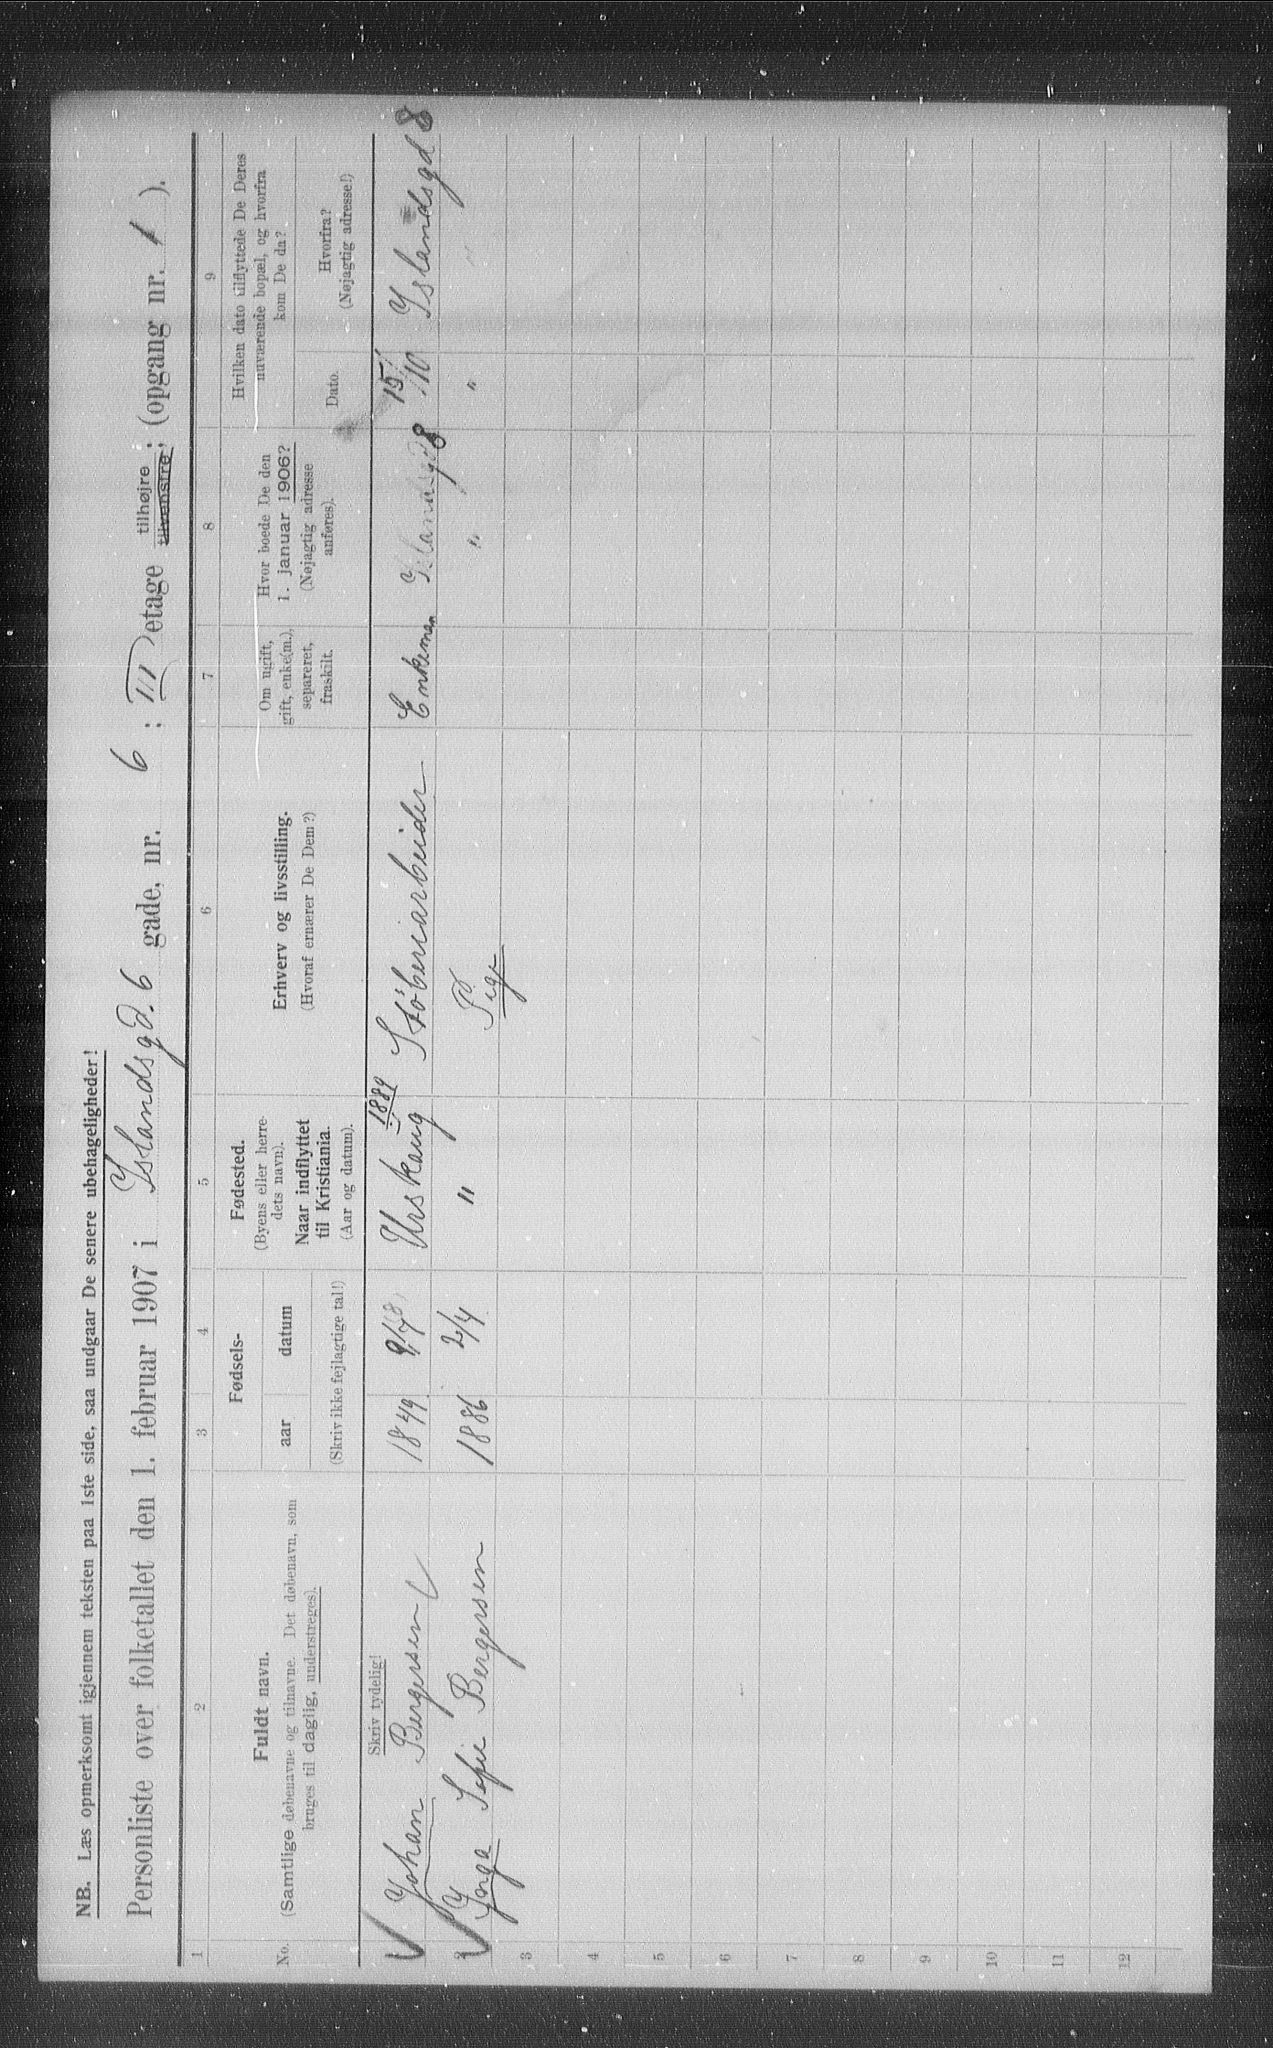 NB. Læs opmerksomt igjennem teksten paa 1ste side, saa undgaar De senere ubehageligheder!
Personliste over folketallet den 1. februar 1907 i Islandsgd. 6 gade, nr. 6 ; III etage tilhøjre tilvenstre ; (opgang nr. 1 ).
1 2 3 4 5 6 7 8 9
No.
Fuldt navn.
(Samtlige døbenavne og tilnavne. Det døbenavn, som
bruges til daglig, understreges).
Skriv tydelig!
Fødsels-
aar datum
(Skriv ikke fejlagtige tal!)
Fødested.
(Byens eller herre-
dets navn).
Naar indflyttet
til Kristiania.
(Aar og datum).
Erhverv og livsstilling.
(Hvoraf ernærer De Dem?)
Om ugift,
gift, enke(m.),
separeret,
fraskilt.
Hvor boede De den
1. januar 1906?
(Nøjagtig adresse
anføres).
Hvilken dato tilflyttede De Deres
nuværende bopæl, og hvorfra
kom De da?
Dato.
Hvorfra?
(Nøjagtig adresse!)
Johan Bergersen 1849 Urskaug 1889 Støberiarbeider Enkeman Islandsgd 8 15/10 Islandsgd 8
2 Inga Sofie Bergersen 1886 2/4 " Pige " " "
3
4
5
6
7
8
9
10
11
12